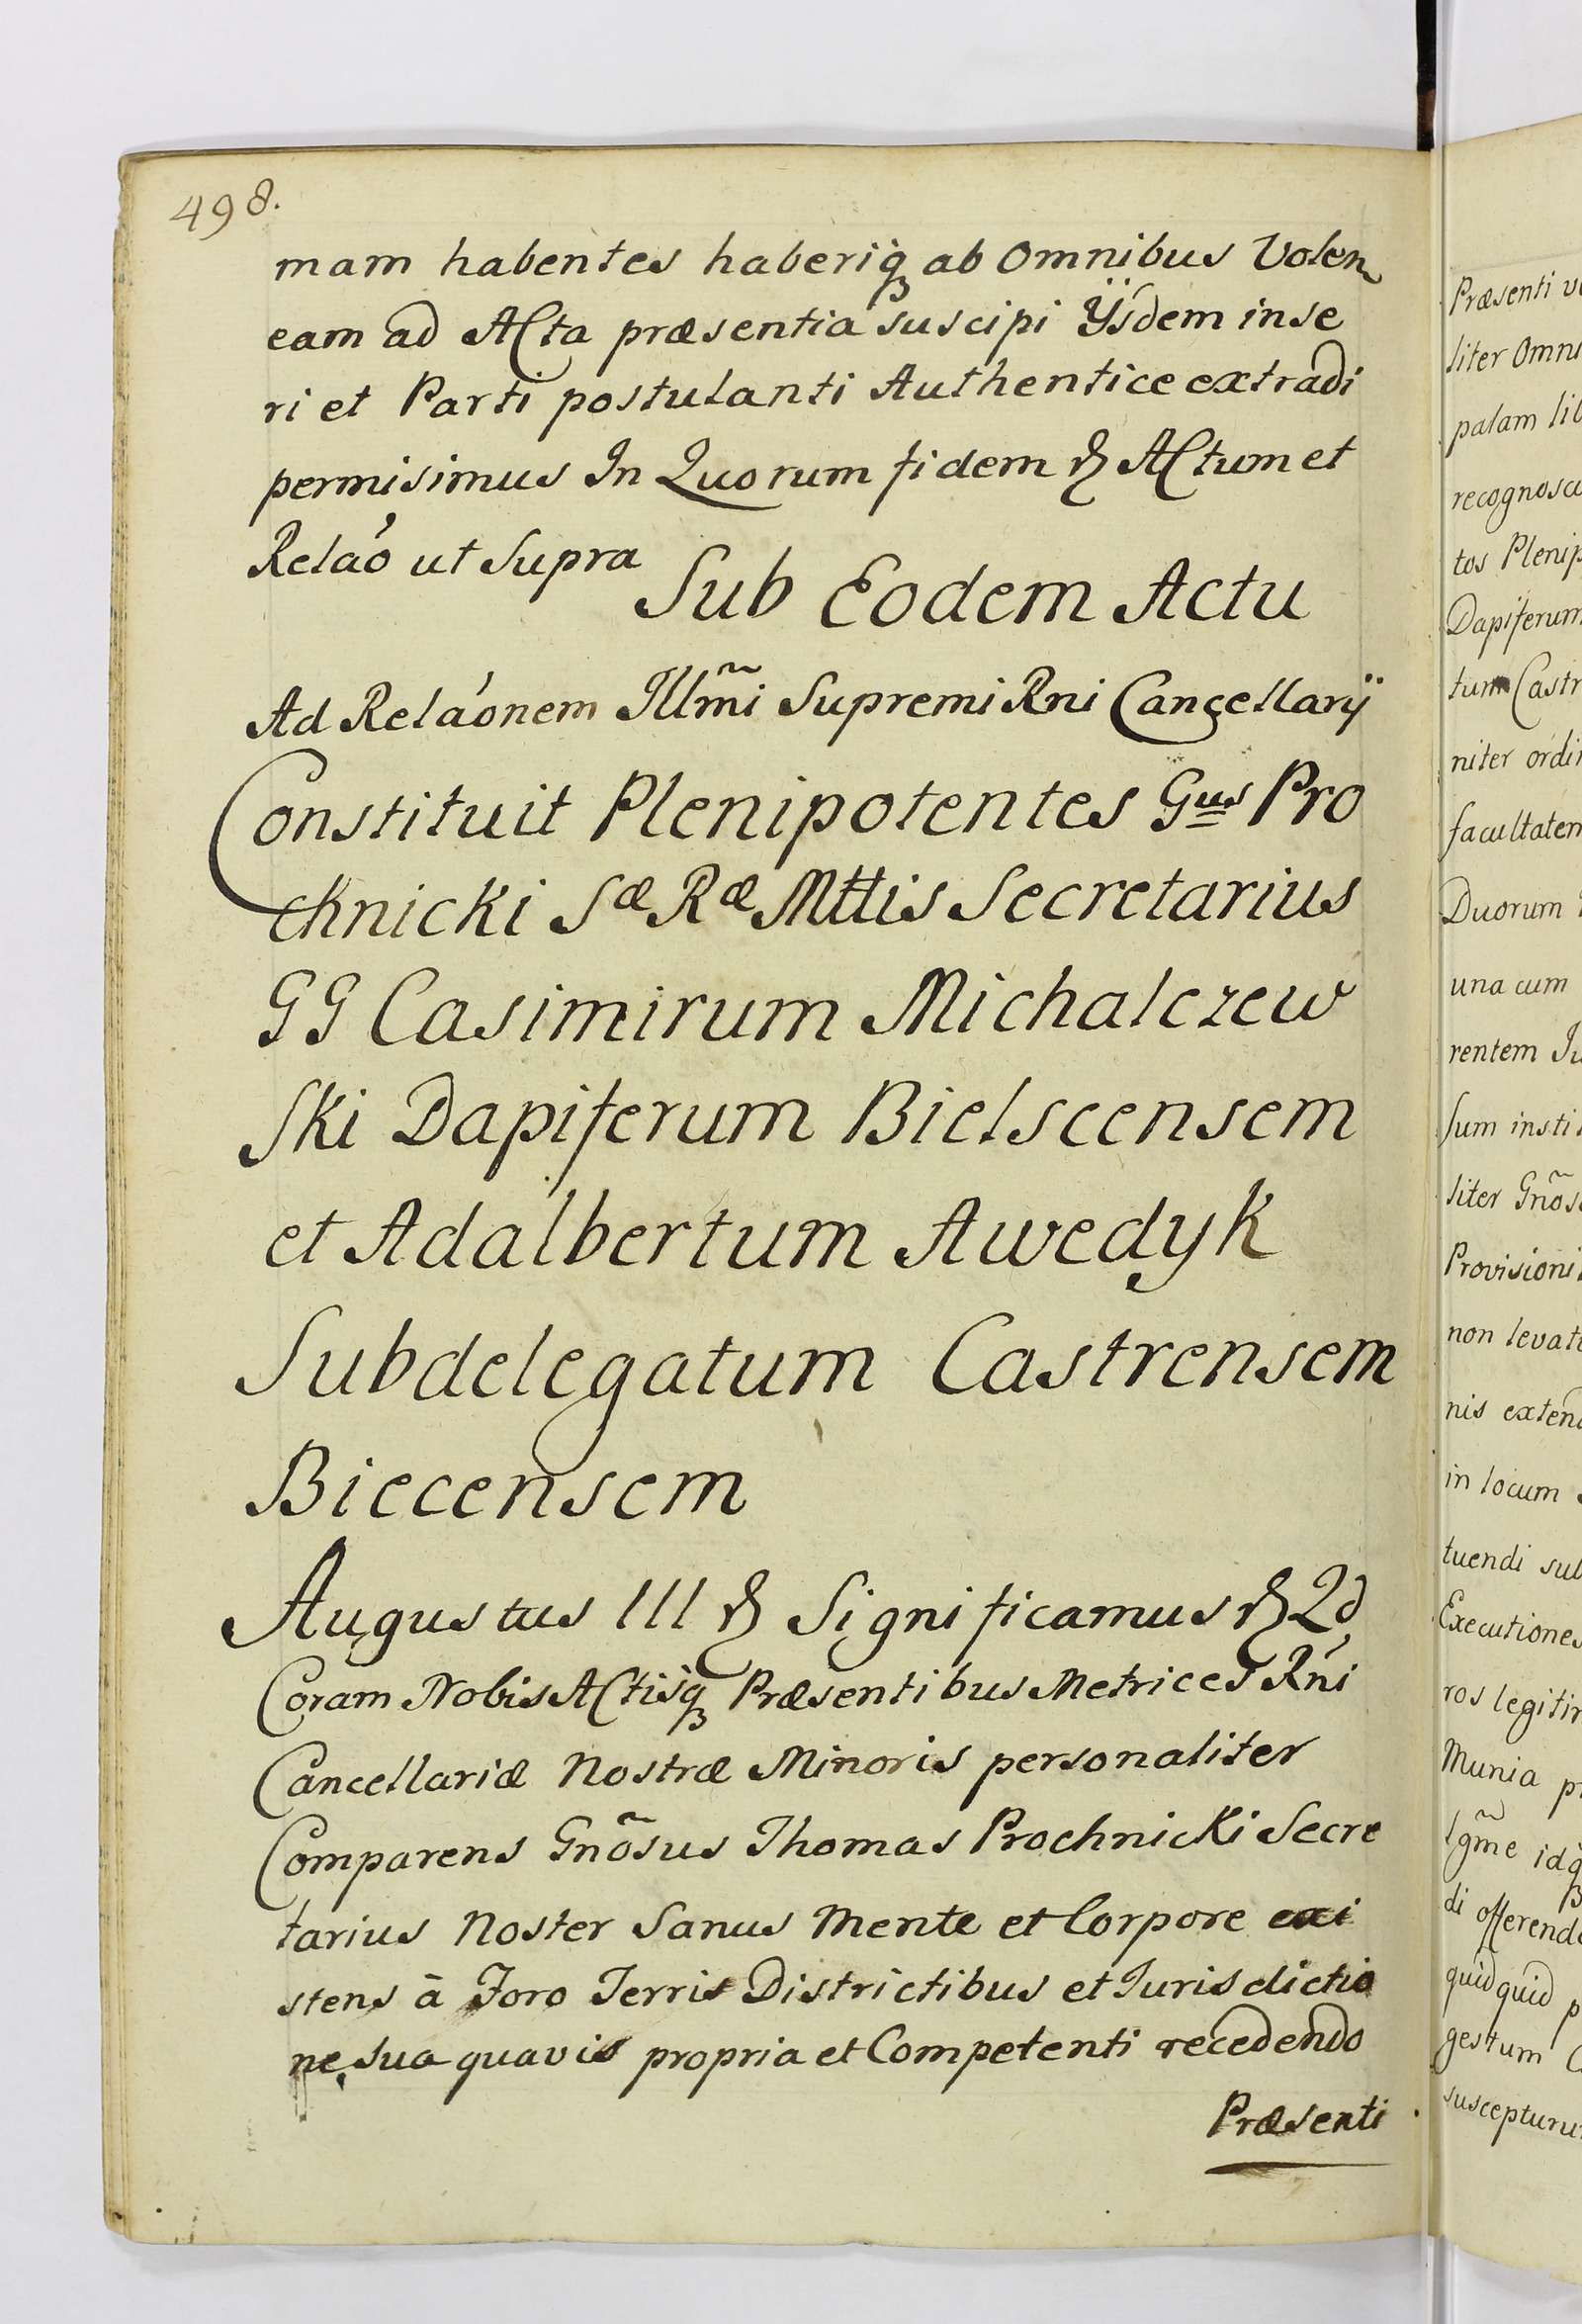 498.
mam habentes haberiq̃ ab Omnibus Volen
eam ad ACta præsentia suscipi Ÿsdem inse
ri et Parti postulanti Authentice extradi
permisimus In Quorum fidem & ACtum et
Relaó ut Supra
Sub Eodem Actu
Ad Relaónem Illm̃i Supremi Rni Cancellarÿ
Constituit Plenipotentes Gus Pro
chnicki Sæ Ræ Mttis Secretarius
GG Casimirum Michalczew
Ski Dapiferum Bielscensem
et Adalbertum Awedyk
Subdelegatum Castrensem
Biecensem
Augustus III & Significamus & Qd
Coram Nobis ACtisq̃ Præsentibus Metrices Rńi
Cancellariæ Nostræ Minoris personaliter
Comparens Gnõsus Thomas Prochnicki Secre
tarius Noster Sanus Mente et Corpore exi
stens à Foro Terris Districtibus et Jurisdictio
ne sua quavis propria et Competenti recedendo
Præsenti
Præsenti
liter Omni
palam lib
recognosc
tos Plenip
Dapiferum
tum Castr
niter ordi
facultatem
Duorum
una cum
rentem Ju
sum insti
liter Gnõs
Provisioni
non levat
nis exten
in locum
tuendi sub
Executiones
ros legitim
Munia p
lgm̃e idq̃
di offerend
quidquid p
gestum
suscepturu